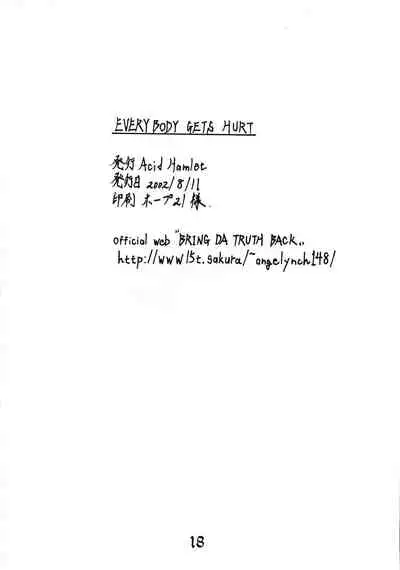 EVERYBODY GETS HURT
発行 Acid Hamlet
発行日 2002/8/11
印刷 ホープ21 様.
official web "BRING DA TRUTH BACK„
http://www15t.sakura/~angelynch148/
18